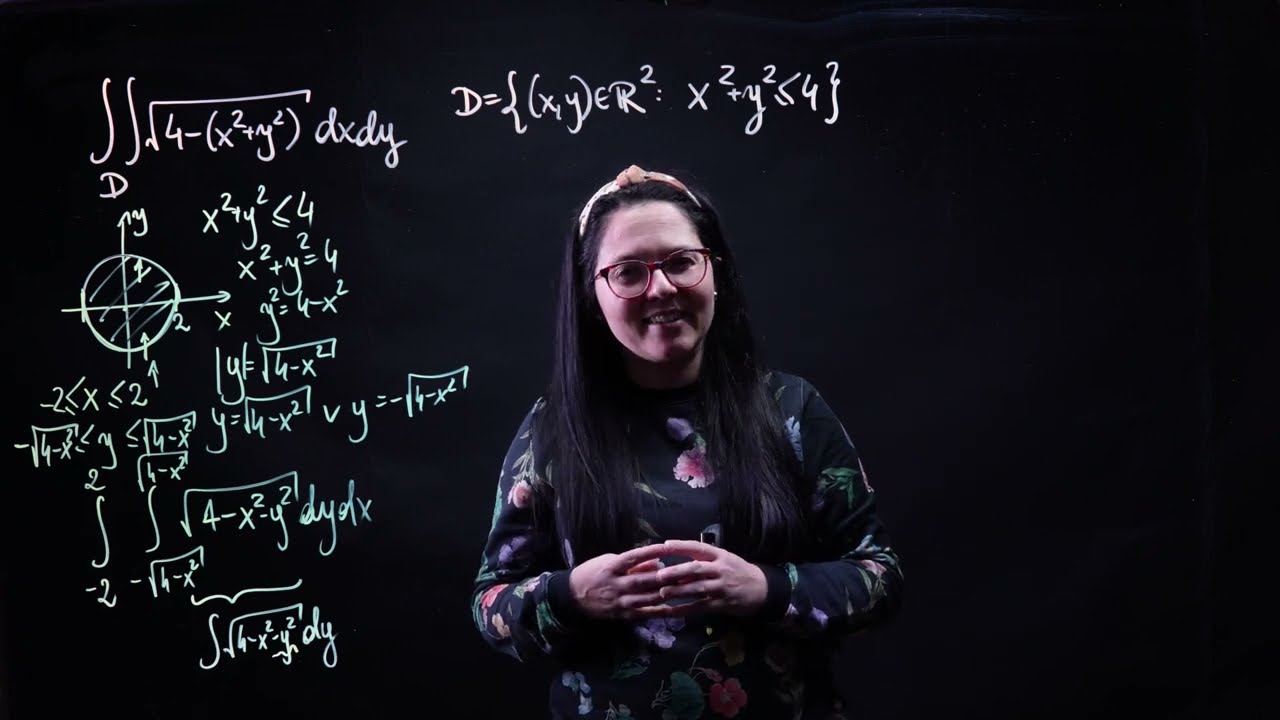 ∬_D √(4-(x²+y²)) dxdy
D={(x,y)∈ℝ²: x²+y²≤4}
y
x
2
x²+y²≤4
x²+y²=4
y²=4-x²
|y|=√(4-x²)
y=√(4-x²) ∨ y=-√(4-x²)
-2≤x≤2
-√(4-x²)≤y≤√(4-x²)
∫_{-2}^{2} ∫_{-√(4-x²)}^{√(4-x²)} √(4-x²-y²) dydx
∫√(4-x²-y²) dy